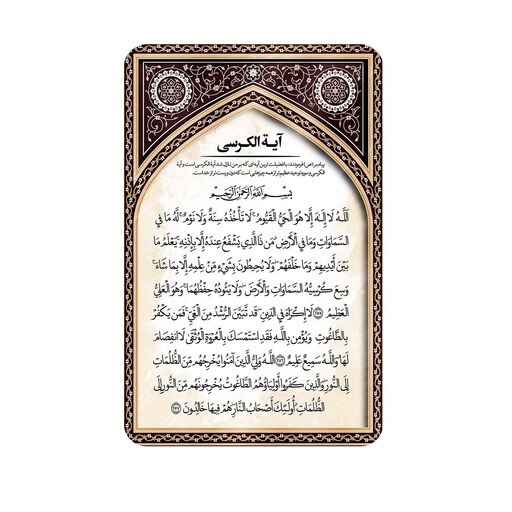 آیة الکرسی
پیامبر (ص) فرمودند: بافضیلت ترین آیه‌ای که بر من نازل شد آیة الکرسی است و آیة
الکرسی و سوره توحید عظیم تر از همه چیزهایی است که دون و پست تر از خداست.
بِسْمِ اللَّهِ الرَّحْمَنِ الرَّحِيمِ
اللَّهُ لَا إِلَهَ إِلَّا هُوَ الْحَيُّ الْقَيُّومُ لَا تَأْخُذُهُ سِنَةٌ وَلَا نَوْمٌ لَهُ مَا فِي
السَّمَاوَاتِ وَمَا فِي الْأَرْضِ مَنْ ذَا الَّذِي يَشْفَعُ عِنْدَهُ إِلَّا بِإِذْنِهِ يَعْلَمُ مَا
بَيْنَ أَيْدِيهِمْ وَمَا خَلْفَهُمْ وَلَا يُحِيطُونَ بِشَيْءٍ مِنْ عِلْمِهِ إِلَّا بِمَا شَاءَ
وَسِعَ كُرْسِيُّهُ السَّمَاوَاتِ وَالْأَرْضَ وَلَا يَئُودُهُ حِفْظُهُمَا وَهُوَ الْعَلِيُّ
الْعَظِيمُ ﴿٢٥٥﴾ لَا إِكْرَاهَ فِي الدِّينِ قَدْ تَبَيَّنَ الرُّشْدُ مِنَ الْغَيِّ فَمَنْ يَكْفُرْ
بِالطَّاغُوتِ وَيُؤْمِنْ بِاللَّهِ فَقَدِ اسْتَمْسَكَ بِالْعُرْوَةِ الْوُثْقَى لَا انْفِصَامَ
لَهَا وَاللَّهُ سَمِيعٌ عَلِيمٌ ﴿٢٥٦﴾ اللَّهُ وَلِيُّ الَّذِينَ آمَنُوا يُخْرِجُهُمْ مِنَ الظُّلُمَاتِ
إِلَى النُّورِ وَالَّذِينَ كَفَرُوا أَوْلِيَاؤُهُمُ الطَّاغُوتُ يُخْرِجُونَهُمْ مِنَ النُّورِ إِلَى
الظُّلُمَاتِ أُولَئِكَ أَصْحَابُ النَّارِ هُمْ فِيهَا خَالِدُونَ ﴿٢٥٧﴾